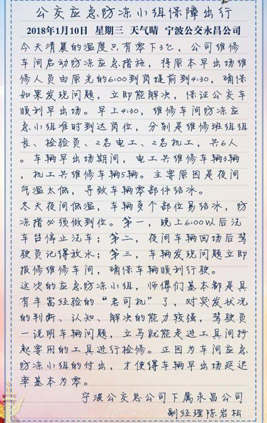 公交应急防冻小组保障出行
2018年1月10日 星期三 天气晴 宁波公交永昌公司
今天清晨的温度只有零下3℃，公司维修
车间启动防冻应急措施，将原本早出场维
修人员由原先的6:00到岗提前到4:30，确保
如果发现问题，立即能解决，保证公交车
顺利早出场。早上4:30，维修车间防冻应
急小组准时到达岗位，分别是维修班组组
长、检验员、2名电工、2名机工，共6人
。车辆早出场期间，电工共维修车辆5辆
，机工共维修车辆5辆。主要原因是夜间
气温太低，导致车辆零部件结冰。
冬天夜间低温，车辆多个部位易结冰，防
冻措必须做到位。第一，晚上6:00以后洗
车台停止洗车；第二，夜间车辆回场后驾
驶员记得放水；第三，车辆发现问题立即
报修维修车间，确保车辆顺利行驶。
这次的应急防冻小组，师傅们基本都是具
有丰富经验的“老司机”了，对突发状况
的判断、认知、解决的能力较强，驾驶员
一说明车辆问题，立马就能走进工具间抄
起要用的工具进行检修。正因为车间应急
防冻师傅的付出，才使得车辆早出场延迟
率基本为零。
宁波公交总公司下属永昌公司
副经理陈岩松